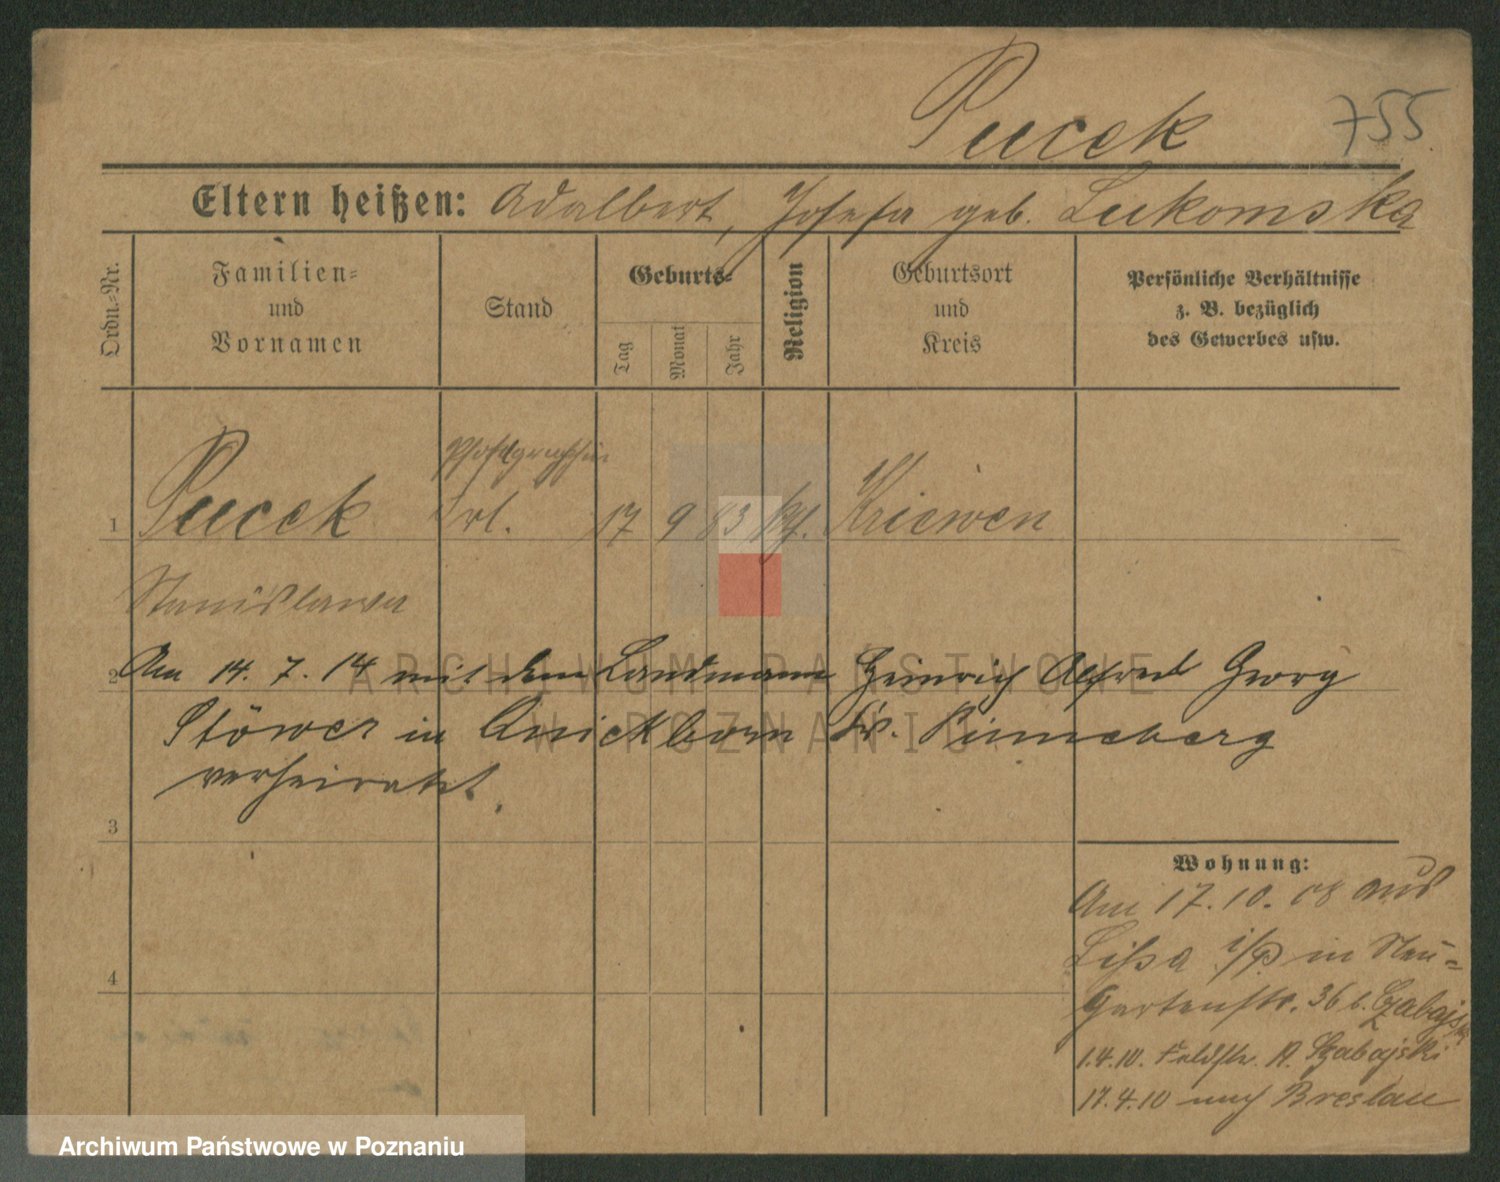 Pucek 755
Eltern heißen: Adalbert, Josefa geb. Lukomska
Ordn.-Nr.
Familien- und Vornamen
Stand
Geburts-
Tag
Monat
Jahr
Religion
Geburtsort und Kreis
Persönliche Verhältnisse
z. B. bezüglich
des Gewerbes usw.
Photographin
1 Pucek Frl. 17 9 83 kt. Kriewen
Stanislawa
2 Am 14. 7. 14 mit dem Landmann Heinrich Alfred Georg
Stöwer in Quickborn Kr. Pinneberg
verheiratet.
3
Wohnung:
Am 17. 10. 08 aus
Lissa i/P in Neu-
4
Gartenstr. 36 b. Czabajski
1.4.10. Feldstr. A. Szabajski
17.4.10 nach Breslau
ARCHIWUM PAŃSTWOWE
W POZNANIU
Archiwum Państwowe w Poznaniu